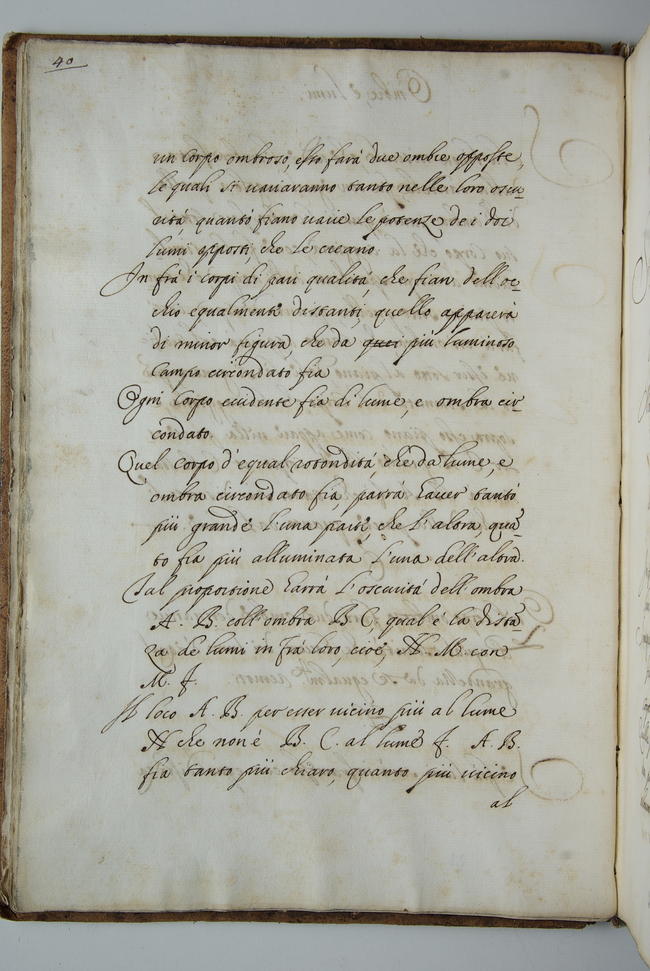 40
un corpo ombroso, esso farà due ombre opposte,
le quali si variaranno tanto nelle loro oscu-
rità, quanto fiano varie le potenze de i doi
lumi opposti, che le creano.
In frà i corpi di pari qualità, che fian dell'oc-
chio equalmente distanti, quello apparerà
di minor figura, che da più luminoso
campo circondato fia
Ogni corpo euidente fia di lume, e ombra cir-
condato.
Quel corpo d'equal rotondità, che da lume, e
ombra circondato fia, parrà hauer tanto
più grande l'una parte, che l'altra, quā-
to fia più alluminata l'una dell'altra.
Tal proportione harrà l'oscurità dell'ombra
A. B. coll'ombra B C, qual'è la distā-
za de lumi in frà loro, cioè, N. M. con
M. f.
Il loco A. B. per esser uicino più al lume
N che non è B. C. al lume f. A. B.
fia tanto più chiaro, quanto più uicino
al